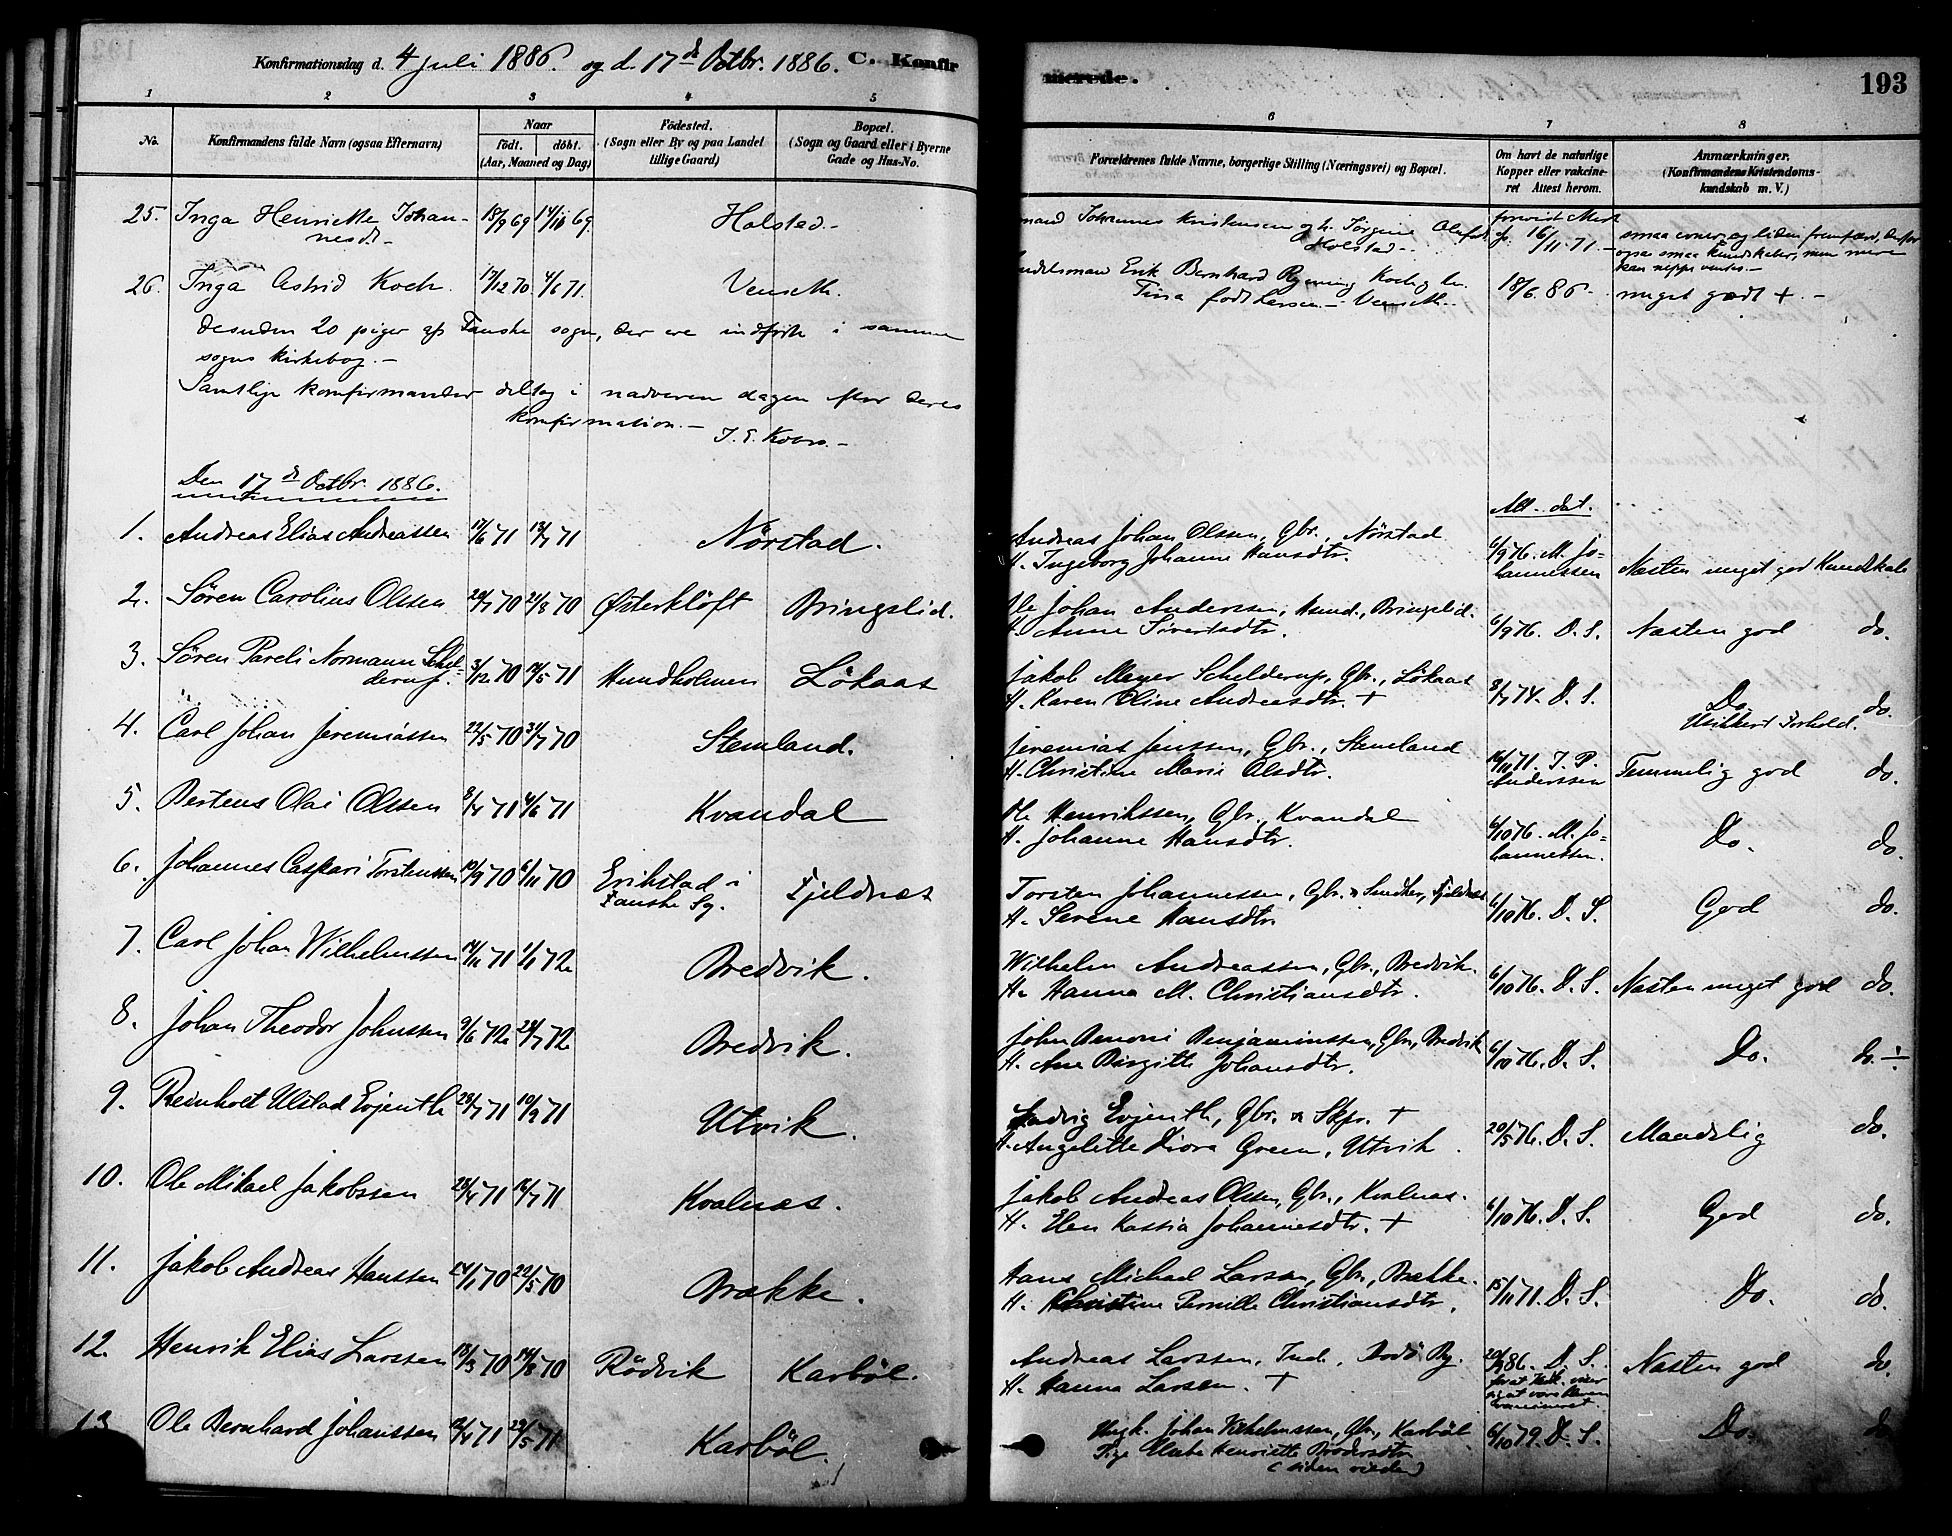 Konfirmationsdag d. 4 Juli 1886. og d. 17de Octbr. 1886. C. Konfirmerede. 193
1 2 3 4 5 6 7 8
No. Konfirmandens fulde Navn (ogsaa Efternavn) Naar født. døbt. (Aar, Maaned og Dag) Fødested. (Sogn eller By og paa Landet tillige Gaard) Bopæl. (Sogn og Gaard eller i Byerne Gade og Hus-No. Forældrenes fulde Navne, borgerlige Stilling (Næringsvei) og Bopæl. Om havt de naturlige Kopper eller vakcineret Attest herom. Anmærkninger. (Konfirmandens Kristendomskundskab m. V.)
25. Inga Henriette Johannesdt. 18/9 69 14/11 69 Holstad. Johannes Kristensen og h. Jörgine Olufsd. Holstad 16/11 71.
26. Inga Astrid Koch 17/12 70 4/6 71. Venseth. Erik Bernhard Rynning Koch og h. Tina født Larsen. Venseth. 18/6 86. meget godt +.
desuden 20 piger af Fauske sogn, der ere indförte i samme
sogns kirkebog.
Samtlige konfirmander deltog i nadveren dagen efter deres
konfirmation.
Den 17de Octbr. 1886.
Att. dat.
1. Andreas Elias Andreassen 17/6 71 13/7 71 Nörstad. Andreas Johan Olssen, Gbr., Nörstad
H. Ingeborg Johanne Hansdtr. 6/9 76. M. Johannessen Næsten meget god Kundskab
2. Sören Carolius Olssen 20/7 70 21/8 70 Østerklöft Bringslid. Ole Johan Anderssen, Husmd., Bringslid.
H. Anne Sivertsdtr. 6/9 76. D. S. Næsten god do.
3. Sören Pareli Normann Schelderup. 3/12 70 14/5 71 Hundholmen Lökaas Jakob Meyer Schelderup, Gbr., Lökaas
H. Karen Oline Andreasdtr. + 8/7 74. D. S. Do. do.
Usikkert Forhold.
4. Carl Johan Jeremiassen 22/5 70 31/7 70 Stemland. Jeremias Jenssen, Gbr., Stemland
H. Christine Marie Olsdtr. 16/11 71. J. P. Anderssen Temmelig god do.
5. Bertens Olai Olssen 8/4 71 4/6 71 Kvandal Ole Henrikssen, Gbr., Kvandal
H. Johanne Hansdtr. 6/10 76. M. Johannessen. Do. do.
6. Johannes Caspari Torstenssen 10/9 70 6/11 70 Erikstad i Fauske Sg. Fjeldnes Torsten Johannessen, Gbr. & Snedker, Fjeldnes
H. Serene Hansdtr. 6/10 76. D. S. God do.
7. Carl Johan Wilhelmssen 14/11 71 1/1 72 Bredvik. Wilhelm Andreassen, Gbr., Bredvik.
H. Hanna M. Christiansdtr. 6/10 76. D. S. Næsten meget god do.
8. Johan Theodor Johnssen 9/6 72 28/7 72 Bredvik. John Benoni Benjaminssen, Gbr., Bredvik
H. Ane Birgitte Johansdtr. 6/10 76. D. S. Do. do. ÷
9. Reinholt Ulstad Evjenth 28/7 71 10/9 71 Utvik. Ludvig Evjenth, Gbr. & Skpr. +
H. Angelette Diora Green, Utvik. 20/5 76. D. S. Maadelig do.
10. Ole Mikael Jakobssen 28/4 71 16/7 71 Kvalnæs. Jakob Andreas Olssen, Gbr., Kvalnæs.
H. Elen Kassia Johannesdtr. + 6/10 76. D. S. God do.
11. Jakob Andreas Hanssen 24/1 70 22/5 70 Brække. Hans Michael Larsen, Gbr., Brække.
H. Christine Pernille Christiansdtr. 15/11 71. D. S. Do. do.
12. Henrik Elias Larssen 18/3 70 14/8 70 Rödvik Karböl. Andreas Larssen, Ind., Bodö By.
H. Hanna Larsen. + 20/9 86. D. S. Næsten god do.
13. Ole Bernhard Johanssen 12/4 71 29/5 71 Karböl. Ungk. Johan Vilhelmssen, Gbr., Karböl
Pige Henriette (siden viede) 6/10 79. D. S. Do. do